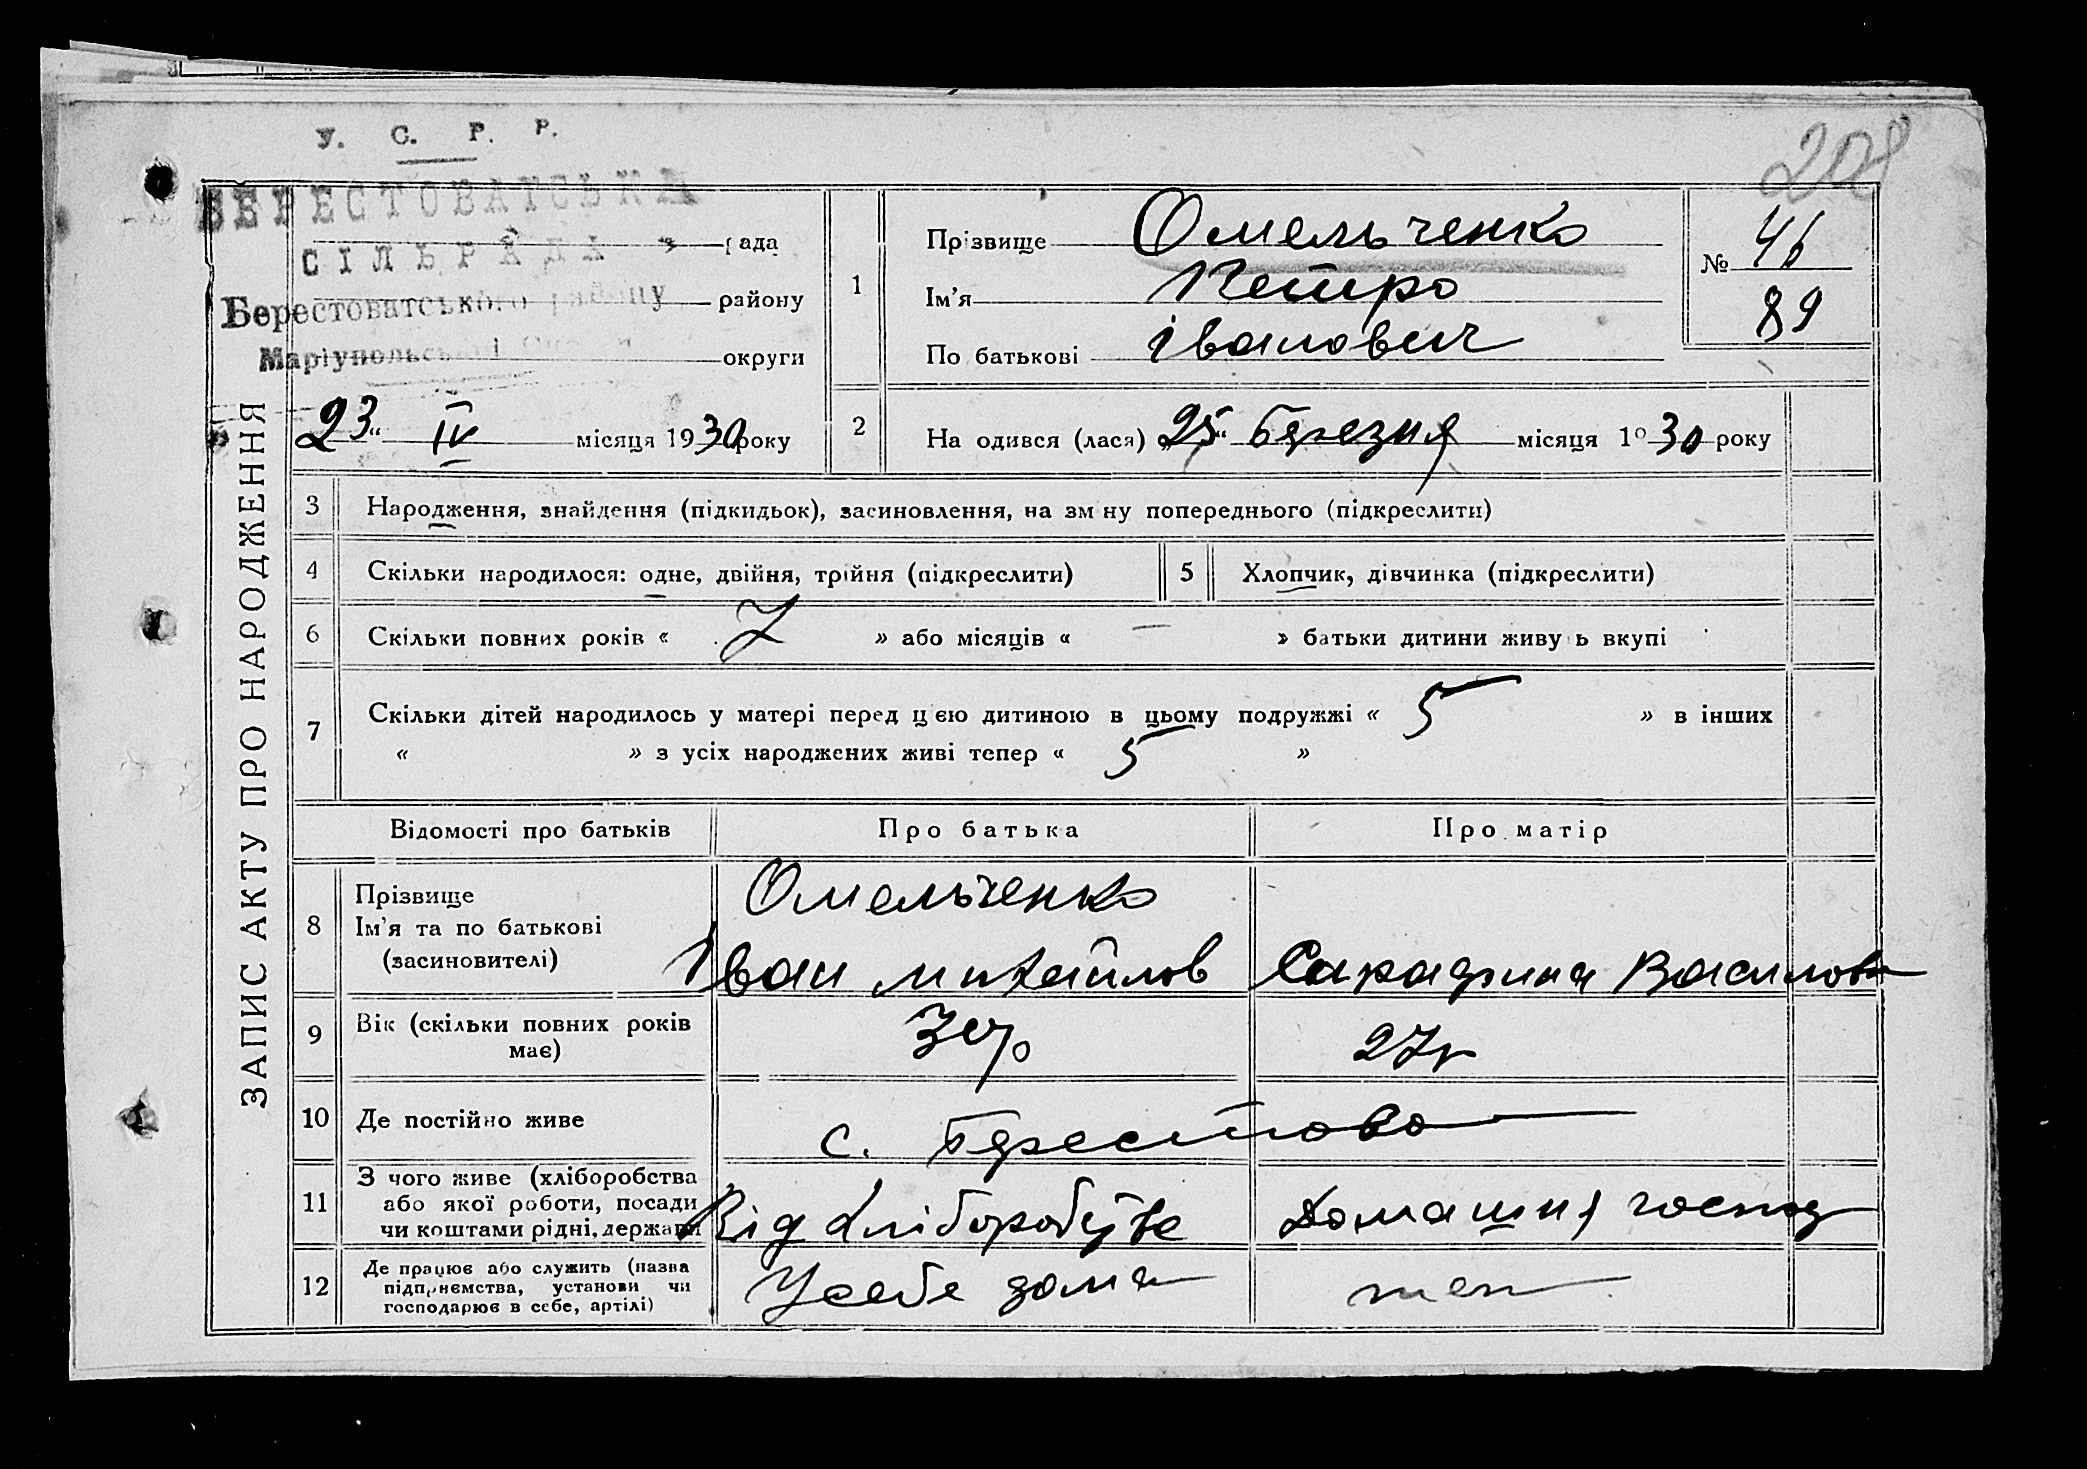 У. С. Р. Р.
208
БЕРЕСТОВАТСЬКА
СІЛЬРАДА рада
Берестоватського району району
Маріупольської округи
23 " IV місяця 1930 року
ЗАПИС АКТУ ПРО НАРОДЖЕННЯ
1 Прізвище Омельченко
Ім'я Петро
По батькові Іванович
№ 46
89
2 На одився (лася) „25" Березня місяця 1930 року
3 Народження, знайдення (підкидьок), засиновлення, на зм ну попереднього (підкреслити)
4 Скільки народилося: одне, двійня, трійня (підкреслити) 5 Хлопчик, дівчинка (підкреслити)
6 Скільки повних років « 7 » або місяців « — » батьки дитини живу ь вкупі
7 Скільки дітей народилось у матері перед цією дитиною в цьому подружжі « 5 » в інших
« » з усіх народжених живі тепер « 5 »
Відомості про батьків Про батька Про матір
8 Прізвище Омельченко
Ім'я та по батькові
(засиновителі) Іван Михайлов Василов
9 Вік (скільки повних років має) 27р
10 Де постійно живе с. Берестово
11 З чого живе (хліборобства
або якої роботи, посади
чи коштами рідні, держави Від Домашня господ
12 Де працює або служить (назва
підприємства, установи чи
господарює в себе, артілі) У себе дома теп